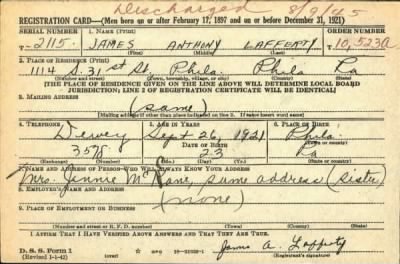 Discharged 8/9/45
REGISTRATION CARD—(Men born on or after February 17, 1897 and on or before December 31, 1921)
SERIAL NUMBER 1. NAME (Print) ORDER NUMBER
T-2115. JAMES ANTHONY LAFFERTY 10,523A
(First) (Middle) (Last)
2. PLACE OF RESIDENCE (Print)
1114 S. 31st St. Phila. Phila Pa
(Number and street) (Town, township, village, or city) (County) (State)
[THE PLACE OF RESIDENCE GIVEN ON THE LINE ABOVE WILL DETERMINE LOCAL BOARD
JURISDICTION; LINE 2 OF REGISTRATION CERTIFICATE WILL BE IDENTICAL]
3. MAILING ADDRESS
(same)
[Mailing address if other than place indicated on line 2. If same insert word same]
4. TELEPHONE 5. AGE IN YEARS 6. PLACE OF BIRTH
Dewey Sept 26, 1921 Phila.
DATE OF BIRTH (Town or county)
3578 23 Pa
(State or country)
7. NAME AND ADDRESS OF PERSON WHO WILL ALWAYS KNOW YOUR ADDRESS
Mrs. Jennie McKane, same address (sister)
8. EMPLOYER'S NAME AND ADDRESS
(none)
9. PLACE OF EMPLOYMENT OR BUSINESS
(Number and street or R. F. D. number) (Town) (County) (State)
I AFFIRM THAT I HAVE VERIFIED ABOVE ANSWERS AND THAT THEY ARE TRUE.
D. S. S. Form 1
(Revised 1-1-42)
James A. Lafferty